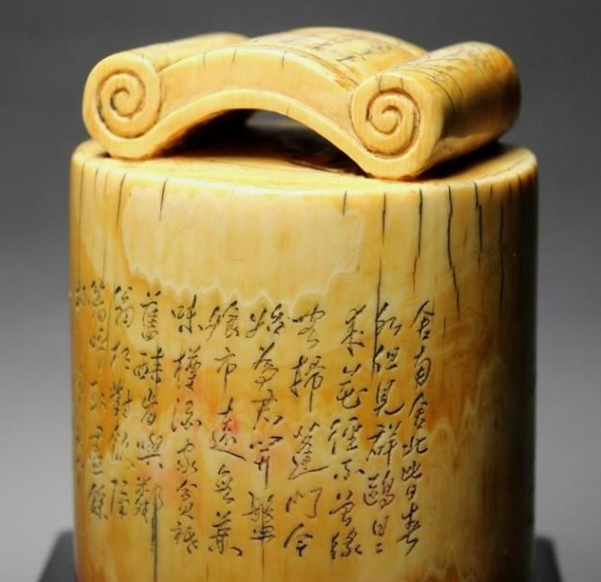 舍南舍北皆春
水但見群鷗日〻
來花徑不曾緣
客掃蓬門今
始為君開盤
飧市遠無兼
味樽酒家貧祗
舊醅肯與鄰
翁相對飲隔
籬呼取盡餘
杯